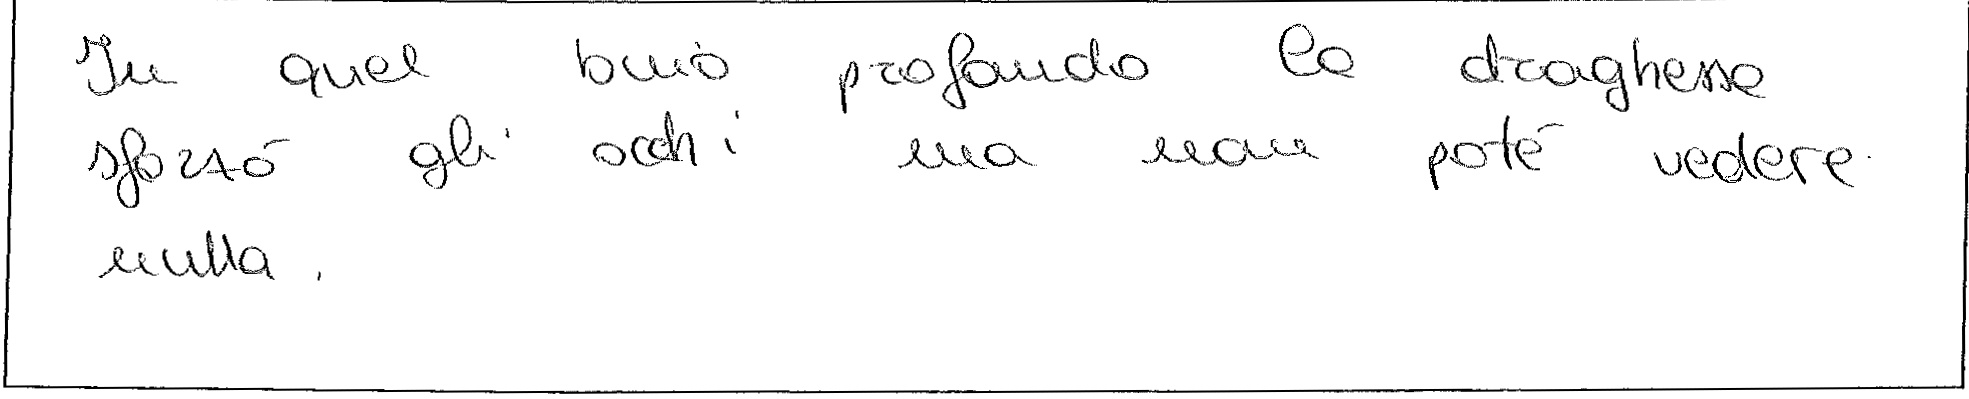 In quel buio profondo la draghessa
sforzò gli occhi ma non poté vedere
nulla.